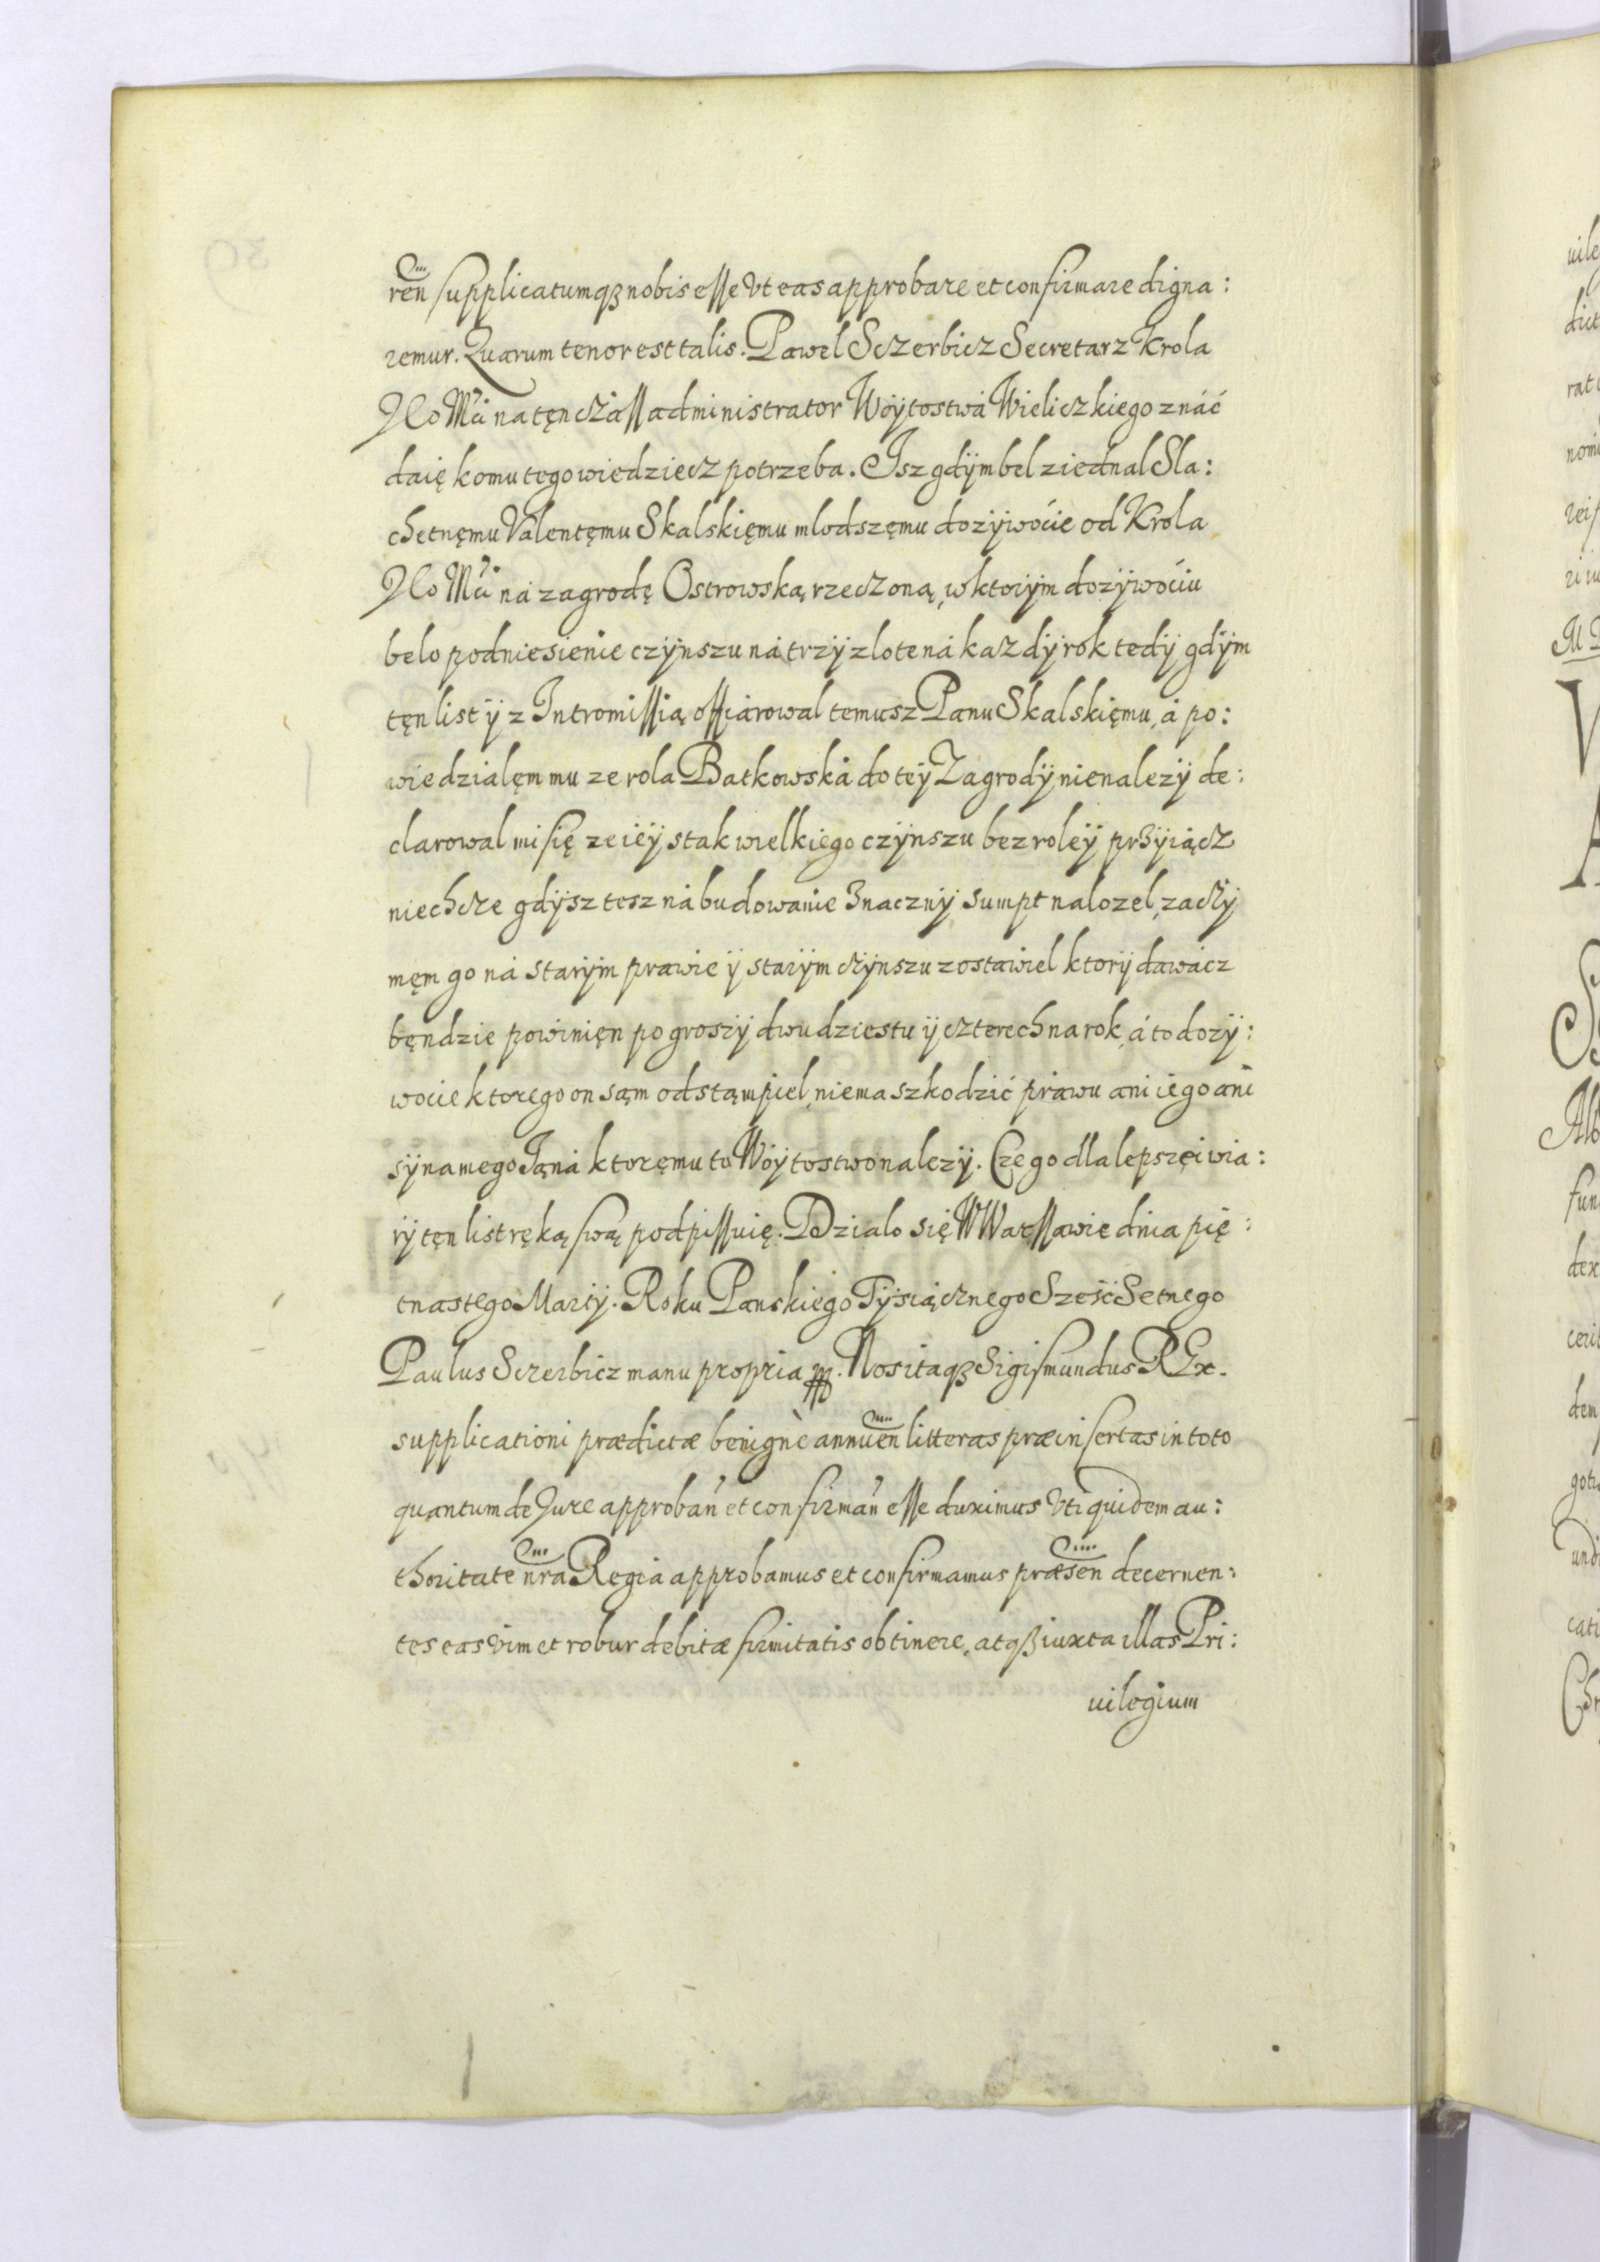 ren supplicatumqз nobis esse Vt eas approbare et confirmare digna:
remur. Quarum tenor est talis. Pawel Sczerbicz Secretarz Krola
na tęn czass administrator Wóytostwá Wieliczkiego znáć
daię komu tego wiedziecz potrzeba. Isz gdÿm bel ziednal Sla:
chetnęmu Valentęmu Skalskięmu mlodszęmu dozÿwócie od Krola
ná zagrodę Ostrowską rzeczoną, w ktorÿm dozÿwóciu
belo podniesienie czÿnszu ná trzÿ zlote ná kazdÿ rok tedÿ gdÿm
tęn list ÿ z Intromissią offiarowal temusz Panu Skalskięmu, á po:
wiedzialęm mu ze rola Batkowská do teÿ Zagrodÿ nie nalezÿ de:
clarowal mi się ze ieÿ s tak wielkiego czÿnszu bez roleÿ przÿiącz
niechcze gdÿsz tesz ná budowanie znacznÿ sumpt nalozel, zaczÿ
męm go ná starÿm prawie ÿ starÿm czÿnszu zostawiel ktorÿ dawácz
będzie powinięn po groszÿ dwudziestu ÿ czterech na rok, á to dozÿ:
wocie ktorego on sąm odstąmpiel, niema szkodzić práwu ani iego ani
sÿna mego Janá ktoręmu to Wóÿtostwo nalezÿ. Czego dla lepszęi wia:
rÿ tęn list ręką swą podpissuię. Dzialo się W Warssawie dnia pię:
tnastego Marcÿ. Roku Panskiego Tÿsiącznego Sześć Setnego
Paulus Sczerbicz manu propria mp. Nos itaqз Sigismundus REx.
supplicationi prædictæ benignè annuen litteras præinsertas in toto
quantum de Jure approbań et confirmań esse duximus Vti quidem au:
thoritate nra Regia approbamus et confirmamus præsen decernen:
tes eas vim et robur debitæ firmitatis obtinere, atqз iuxta illas Pri:
uilegium